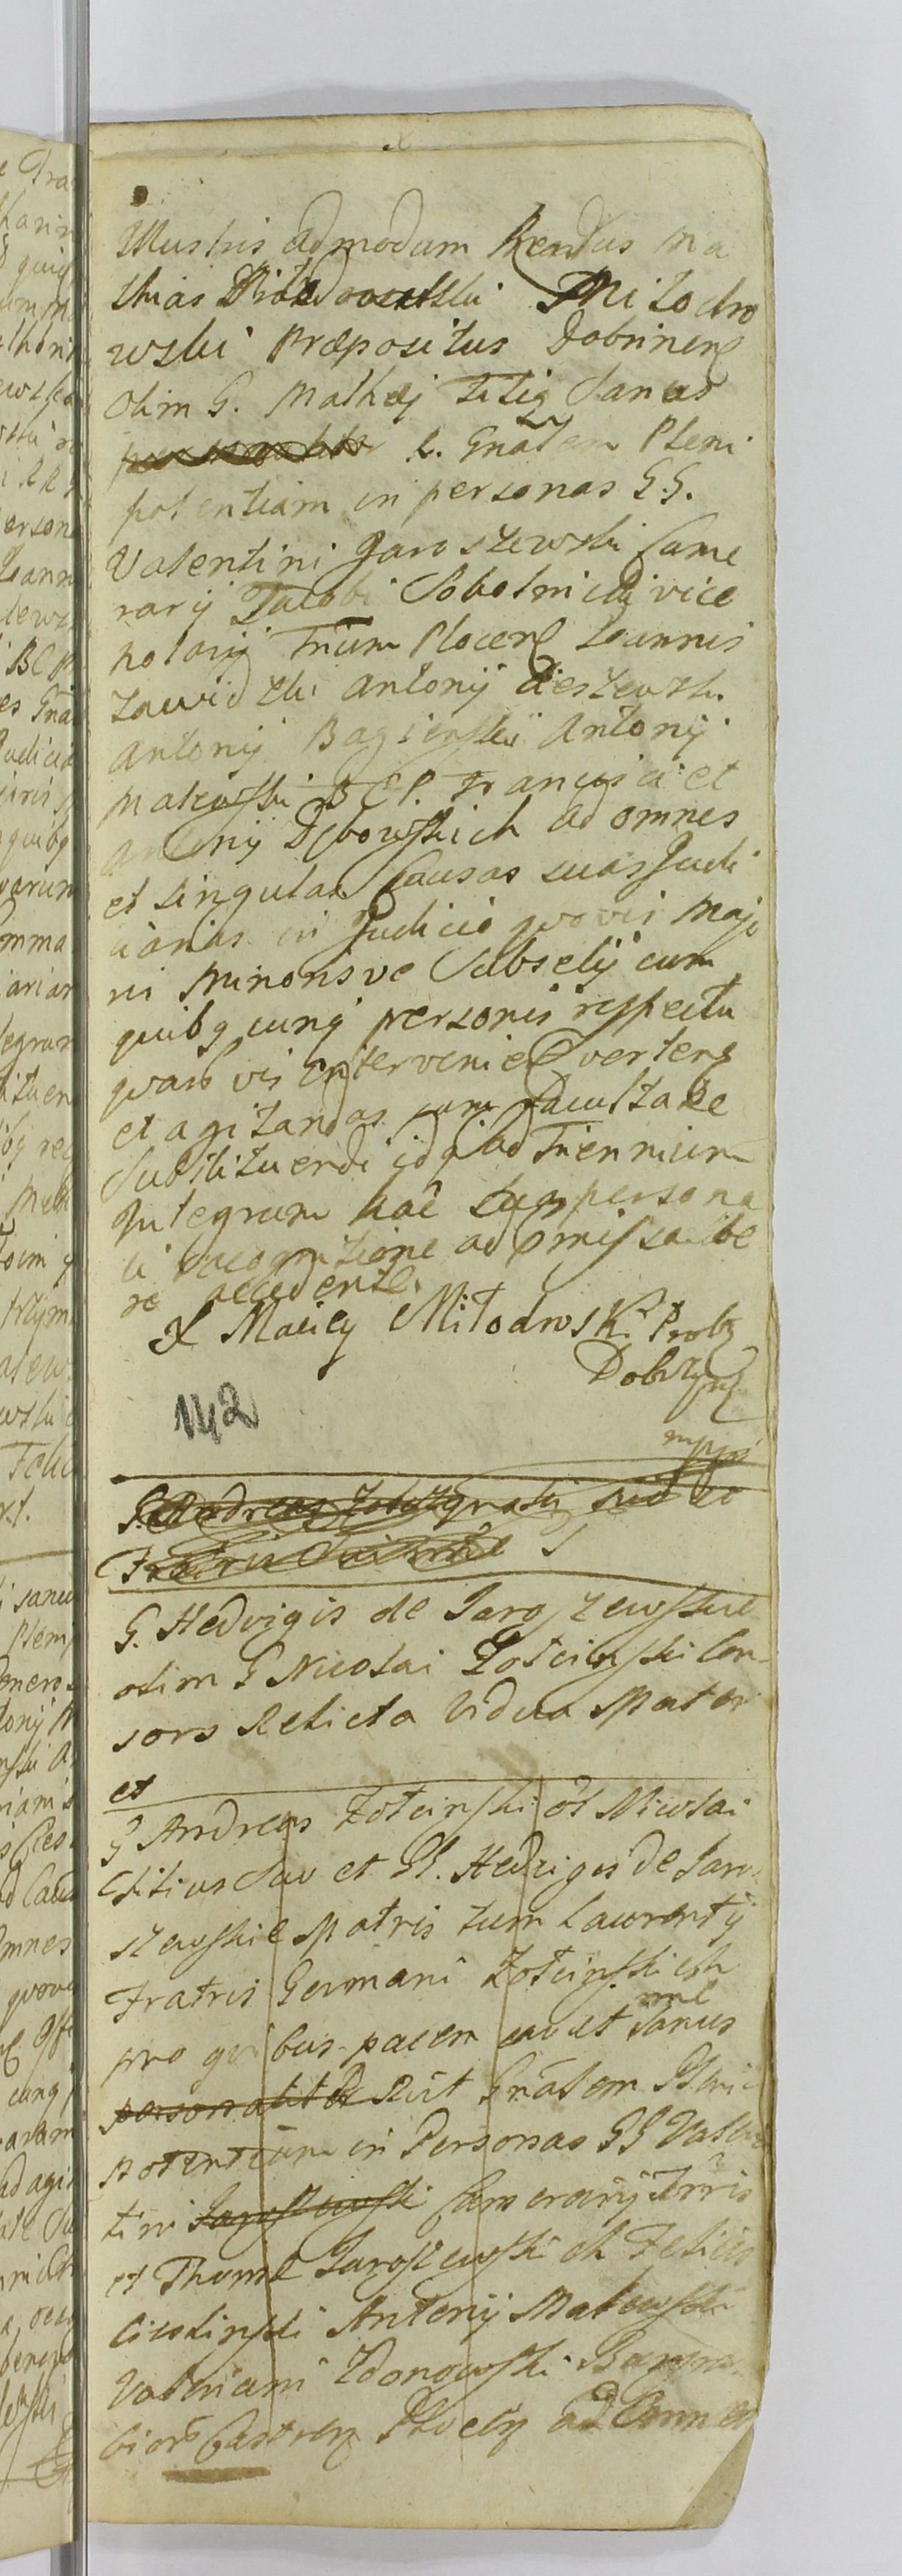 Illustris admodum Rendus Ma
thias Miłodro
wski Præpositus Dobrinen
olim G. Mathæj Filig Sanus
G. Gnalem Pleni
potentiam in personas G.G.
Valentini Jaroszewski Came
rarij Jacobi Sobolnicki vice
notarij Trium Plocen Joannis
Zawidzki Antonij Cieszewski
Antonij Bagienski Antonij
Makowski B C P. Francisci et
Antonij Dębowskich ad omnes
et singulas Causas suas Judi
ciarias in Judicio quovis Majo
ris Minorisve Subselij cum
quibq cunq personis respectu
quarvis interveniec verteng
et agitandas cum Facultate
Substituendi idq ad Triennium
Integrum hac sua persona
li recognitione ad præmissa libe
re accedente.
X Maciey Miłodroski Probq
Dobrzyn
mppr
142
G. Andreas
G. Hedvigis de Jaroszewskie
olim G Nicolai Zołcinski Con
sors Relicta Vidua Mater
et
G Andreas Zołcinski ol Nicolai
Filius Suo et G. Hedvigis de Jaro
szewskie Matris tum Laurentij
Fratris Germani Zołcinskich
pro quibus pacem cavet sanus mne
personaliter Rcit Gnalem Pleni
potentiam in Personas GG Valen
tini Jaroszewski Camerarij Trris
et Thomæ Jaroszewskich Felicis
Ciecolinski Antonij Makowski
Valeriani Zdonowski Burgra
bior Castren Plocen ad Omnes